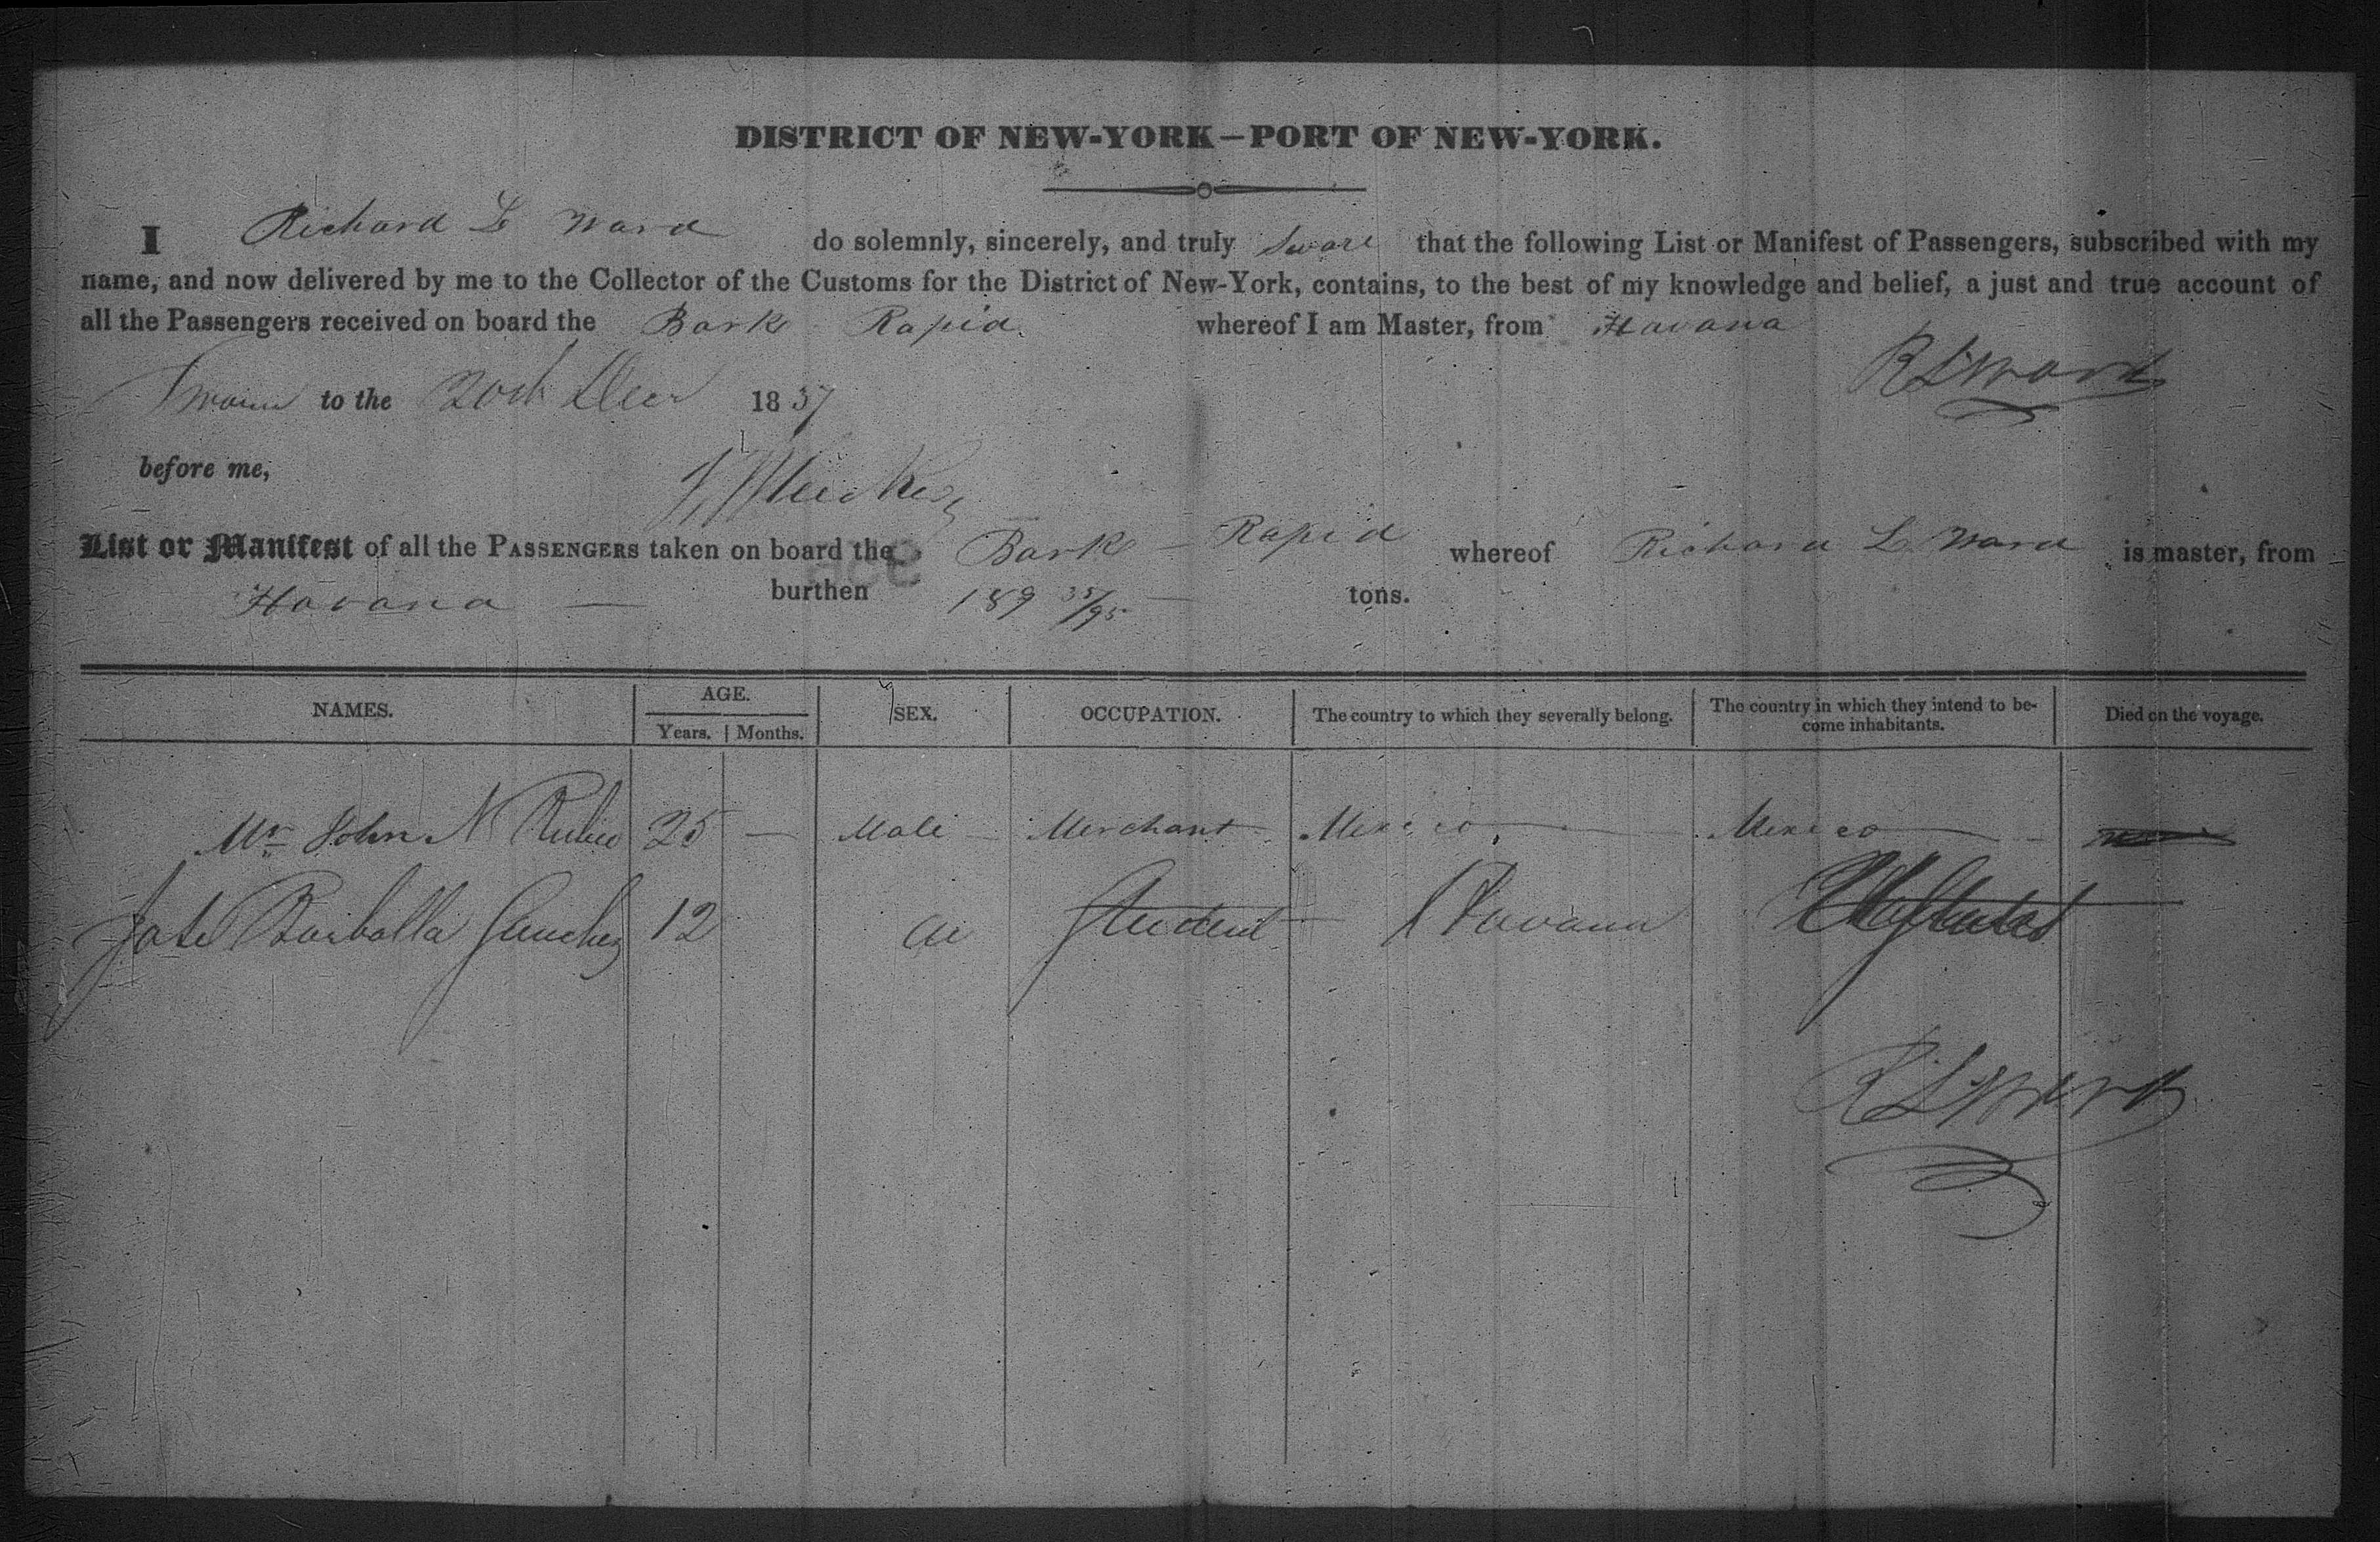 DISTRICT OF NEW-YORK—PORT OF NEW-YORK.
I Richard L Ward do solemnly, sincerely, and truly Swear that the following List or Manifest of Passengers, subscribed with my
name, and now delivered by me to the Collector of the Customs for the District of New-York, contains, to the best of my knowledge and belief, a just and true account of
all the Passengers received on board the Bark Rapid whereof I am Master, from Havana
R L Ward
Sworn to the 20th Decr 1837
before me,
List or Manifest of all the PASSENGERS taken on board the Bark - Rapid whereof Richard L Ward is master, from
Havana — burthen 189 35/95 — tons.
NAMES. AGE. SEX. OCCUPATION. The country to which they severally belong. The country in which they intend to be-
come inhabitants. Died on the voyage.
Years. Months.
Mr John N 25 — Male Merchant Mexico Mexico
Sanchez 12 Student Havana
R L Ward